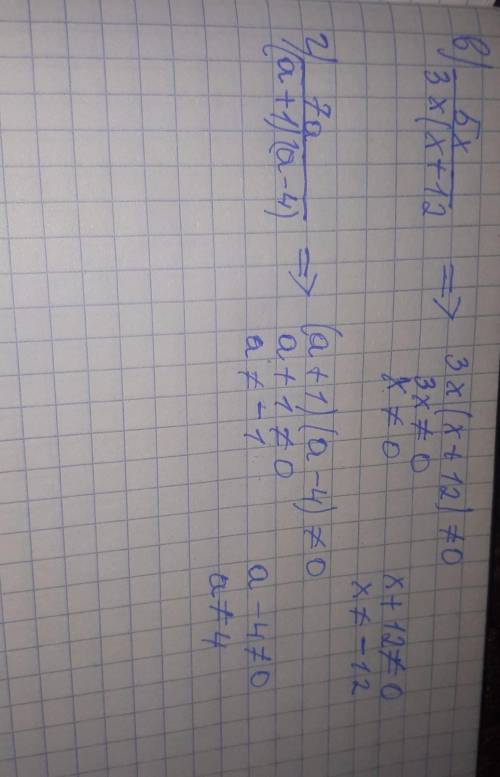 в) 5x / 3x(x+12 => 3x(x+12) ≠ 0
3x ≠ 0
x ≠ 0
x+12 ≠ 0
x ≠ -12
г) 7a / (a+1)(a-4) => (a+1)(a-4) ≠ 0
a+1 ≠ 0
a ≠ -1
a-4 ≠ 0
a ≠ 4